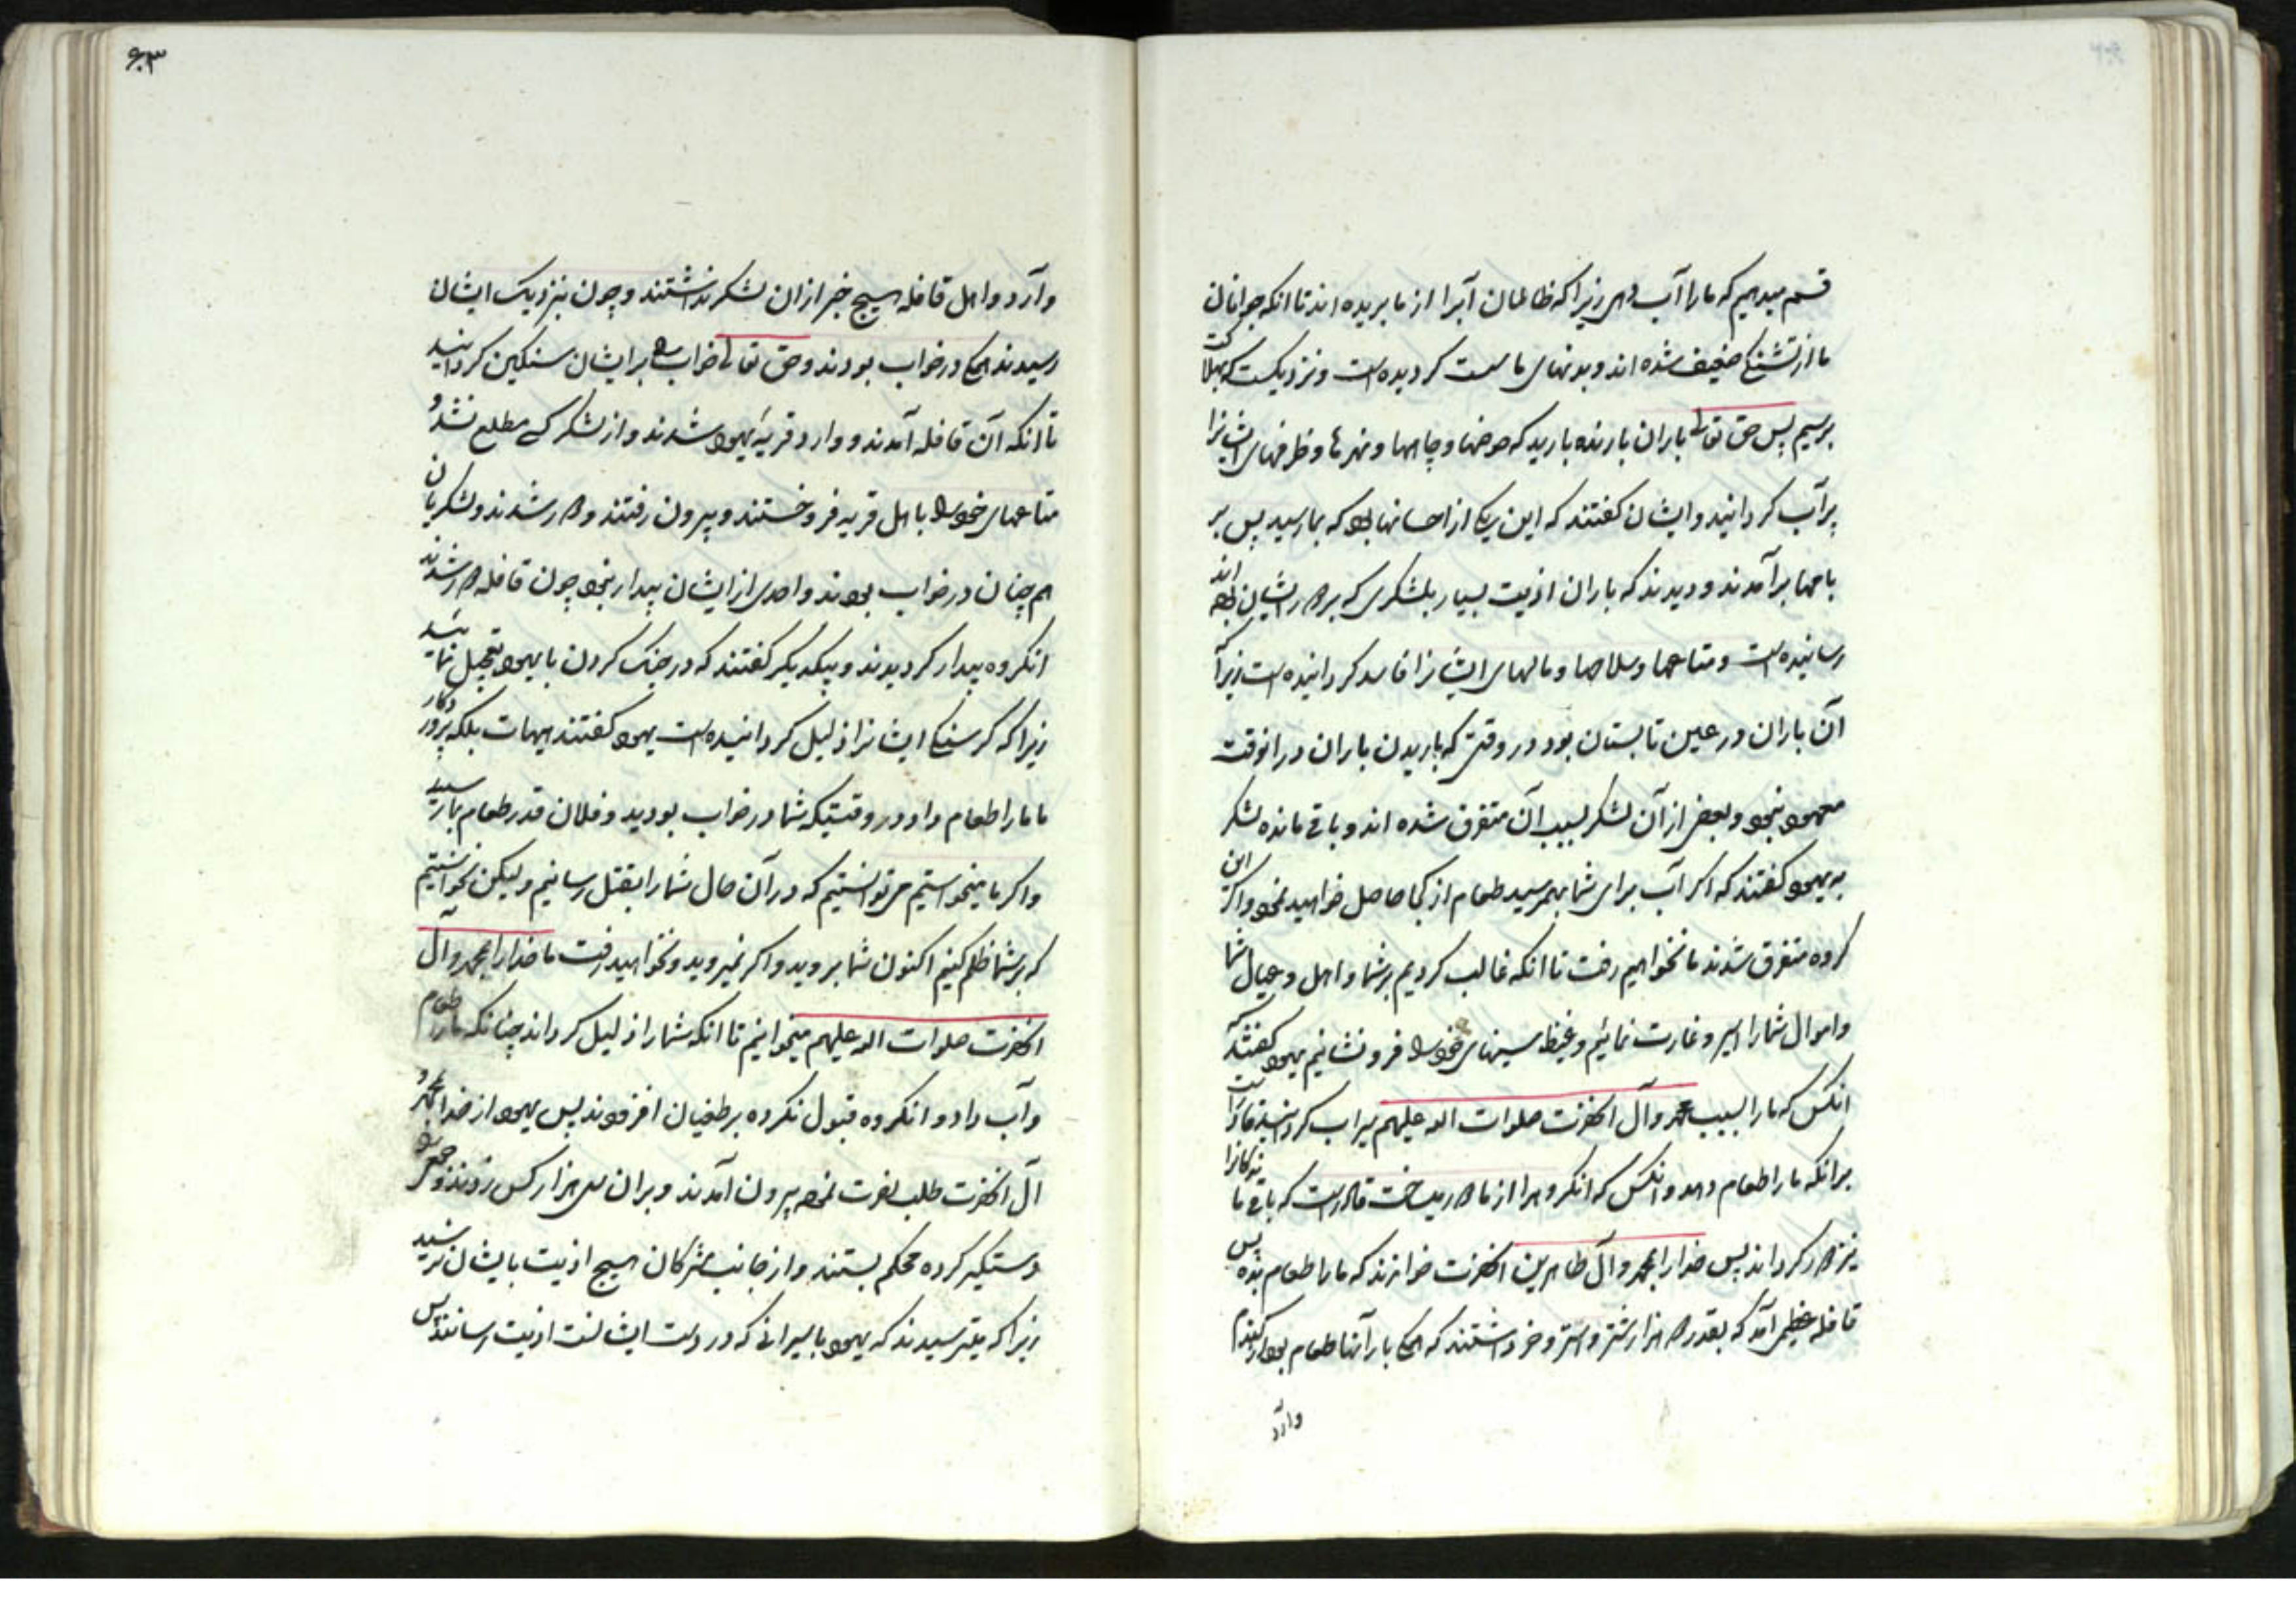 قسم میدهیم که ما را آب دهی زیرا که ظالمان آبرا از ما بریده اند تا انکه جوانان
ما از تشنگی ضعیف شده اند و بدنهای ما سست کردیده است و نزدیکست که بهلاکت
برسیم پس حق تعالی باران بارنده بارید که حوضها و چاهها و نهرها و ظرفهای ایشانرا
پرآب کردانید و ایشان کفتند که این یکی از احسانها بود که بما رسید پس بر
بامها برآمدند و دیدند که باران اذیت بسیار بلشکری که بر دور ایشان بوده اند
رسانیده است و متاعها و سلاحها و مالهای ایشانرا فاسد کردانیده است زیرا
آن باران در عین تابستان بود در وقتی که باریدن باران در انوقت
معهود نبود و بعضی از آن لشکر بسبب آن متفرق شده اند و باقی مانده لشکر
به یهود کفتند که اکر آب برای شما بهمرسید طعام از کجا حاصل خواهید نمود و اکر این
کروه متفرق شدند ما نخواهیم رفت تا انکه غالب کردیم بر شما و اهل و عیال شما
و اموال شما را اسیر و غارت نمائیم و غیظ سینهای خود را فرو نشانیم یهود کفتند
انکس که ما را بسبب محمد و آل انحضرت صلوات الله علیهم سیراب کردانید قادر است
بر انکه ما را طعام دهد و انکس که انکروه را از ما دور ساخت قادر است که باقی ماندکانرا
نیز دور کرداند پس خدا را بمحمد و آل طاهرین انحضرت خواندند که ما را طعام بده پس
قافله عظیمی آمد که بقدر دو هزار شتر و استر و خر داشتند که همکی بار آنها طعام بود از کندم
و آرد
۶۰۳
و آرد و اهل قافله هیچ خبر از ان لشکر نداشتند و چون بنزدیک ایشان
رسیدند همکی در خواب بودند و حق تعالی خواب را بر ایشان سنکین کردانید
تا انکه آن قافله آمدند و وارد قریه یهود شدند و از لشکر کسی مطلع نشد و
متاعهای خود را باهل قریه فروختند و بیرون رفتند و دور شدند و لشکریان
هم چنان در خواب بودند و احدی از ایشان بیدار نبود چون قافله دور شدند
انکروه بیدار کردیدند و بیکدیکر کفتند که در جنک کردن با یهود تعجیل نمائید
زیرا که کرسنکی ایشانرا ذلیل کردانیده است یهود کفتند هیهات بلکه پروردکار
ما ما را طعام داد در وقتیکه شما در خواب بودید و فلان قدر طعام بما رسید
و اکر ما میخواستیم می توانستیم که در آن حال شما را بقتل رسانیم ولیکن نخواستیم
که بر شما ظلم کنیم اکنون شما بروید و اکر نمیروید و نخواهید رفت ما خدا را بمحمد و آل
انحضرت صلوات الله علیهم میخوانیم تا انکه شما را ذلیل کرداند چنانکه ما را طعام
و آب داد و انکروه قبول نکرده بر طغیان افزودند پس یهود از خدا بمحمد و
آل انحضرت طلب نصرت نموده بیرون آمدند و بر ان سی هزار کس زدند و جمعی را
دستکیر کرده محکم بستند و از جانب مشرکان هیچ اذیت بایشان نرسید
زیرا که میترسیدند که یهود باسیرانی که در دست ایشانست اذیت رسانند پس